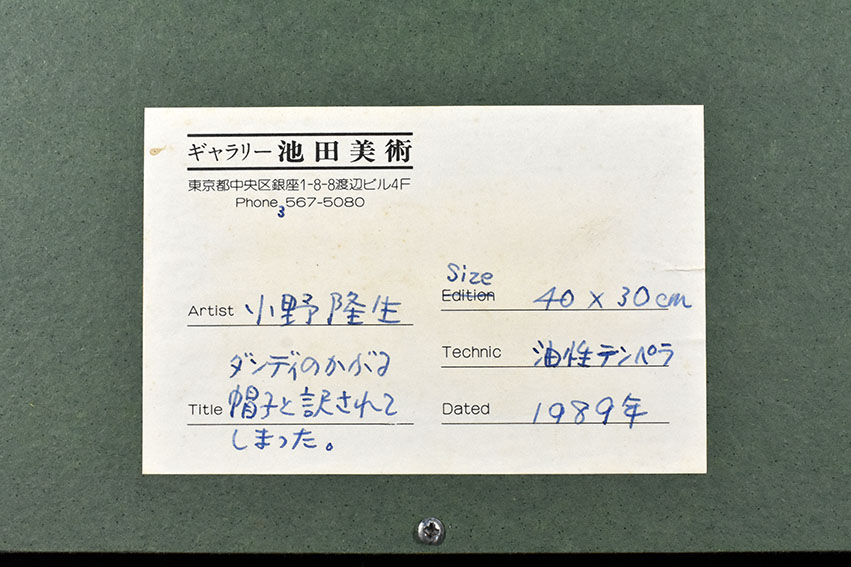 ギャラリー 池田美術
東京都中央区銀座1-8-8渡辺ビル4F
Phone 3 567-5080
Artist 小野隆生
Title ダンディのかぶる
帽子と訳されて
しまった。
Size
Edition 40 × 30cm
Technic 油性テンペラ
Dated 1989年